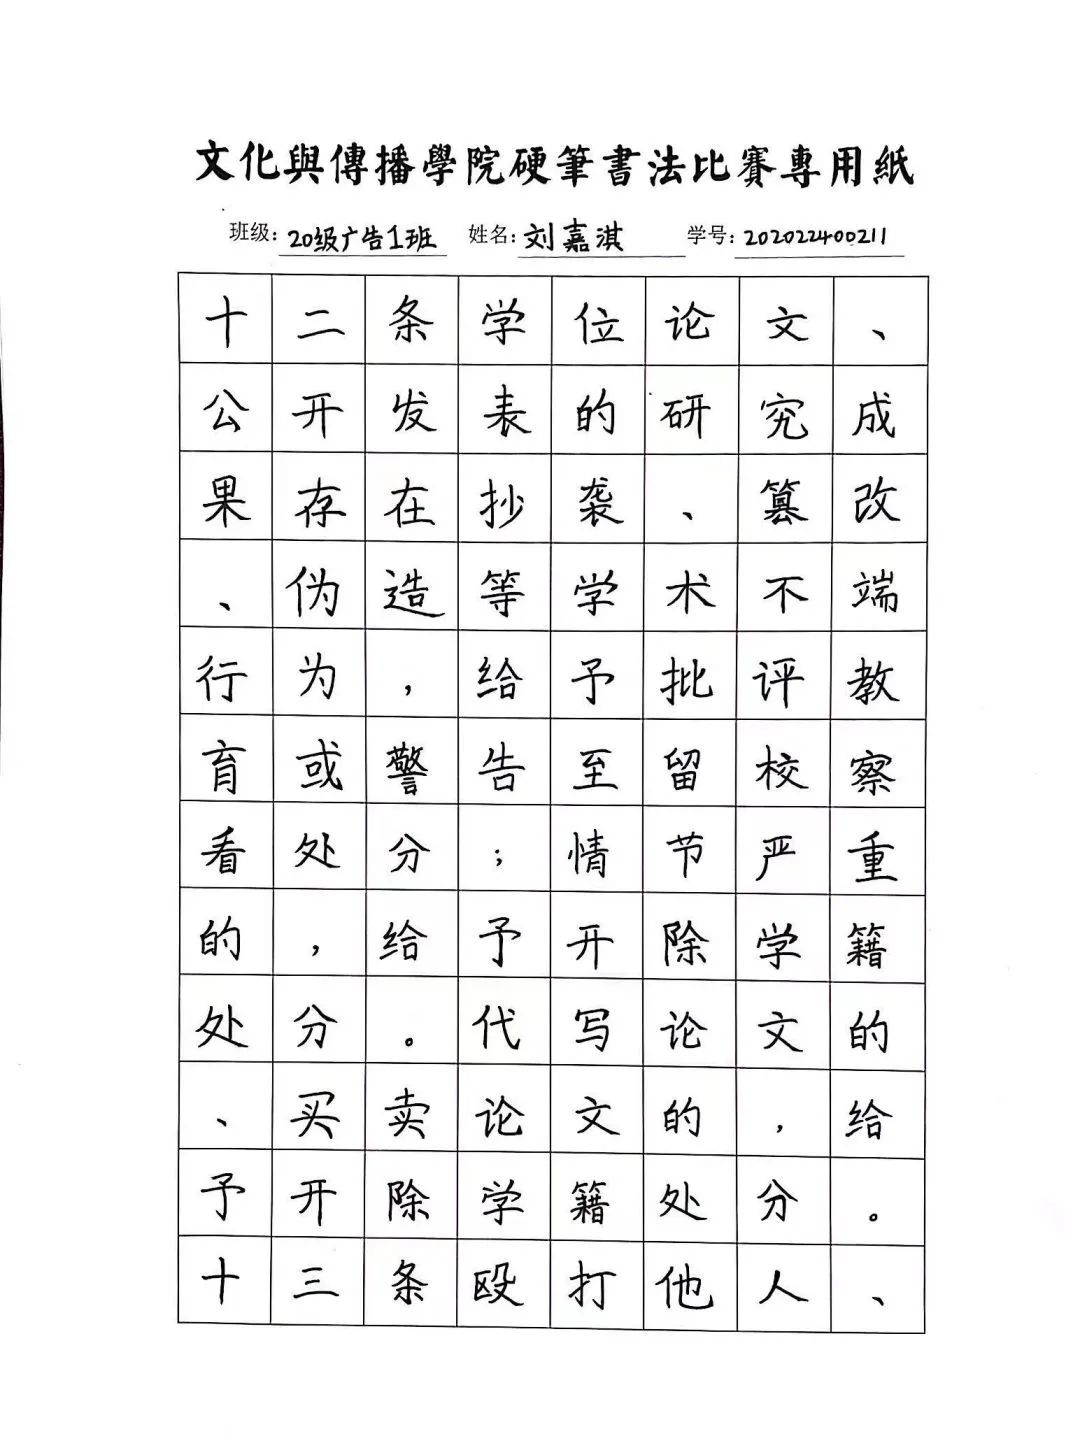 文化與傳播學院硬筆書法比賽專用紙
班级：20级广告1班 姓名：刘嘉淇 学号：202022400211
十二条学位论文、
公开发表的研究成
果存在抄袭、篡改
、伪造等学术不端
行为，给予批评教
育或警告至留校察
看处分；情节严重
的，给予开除学籍
处分。代写论文的
、买卖论文的，给
予开除学籍处分。
十三条殴打他人、